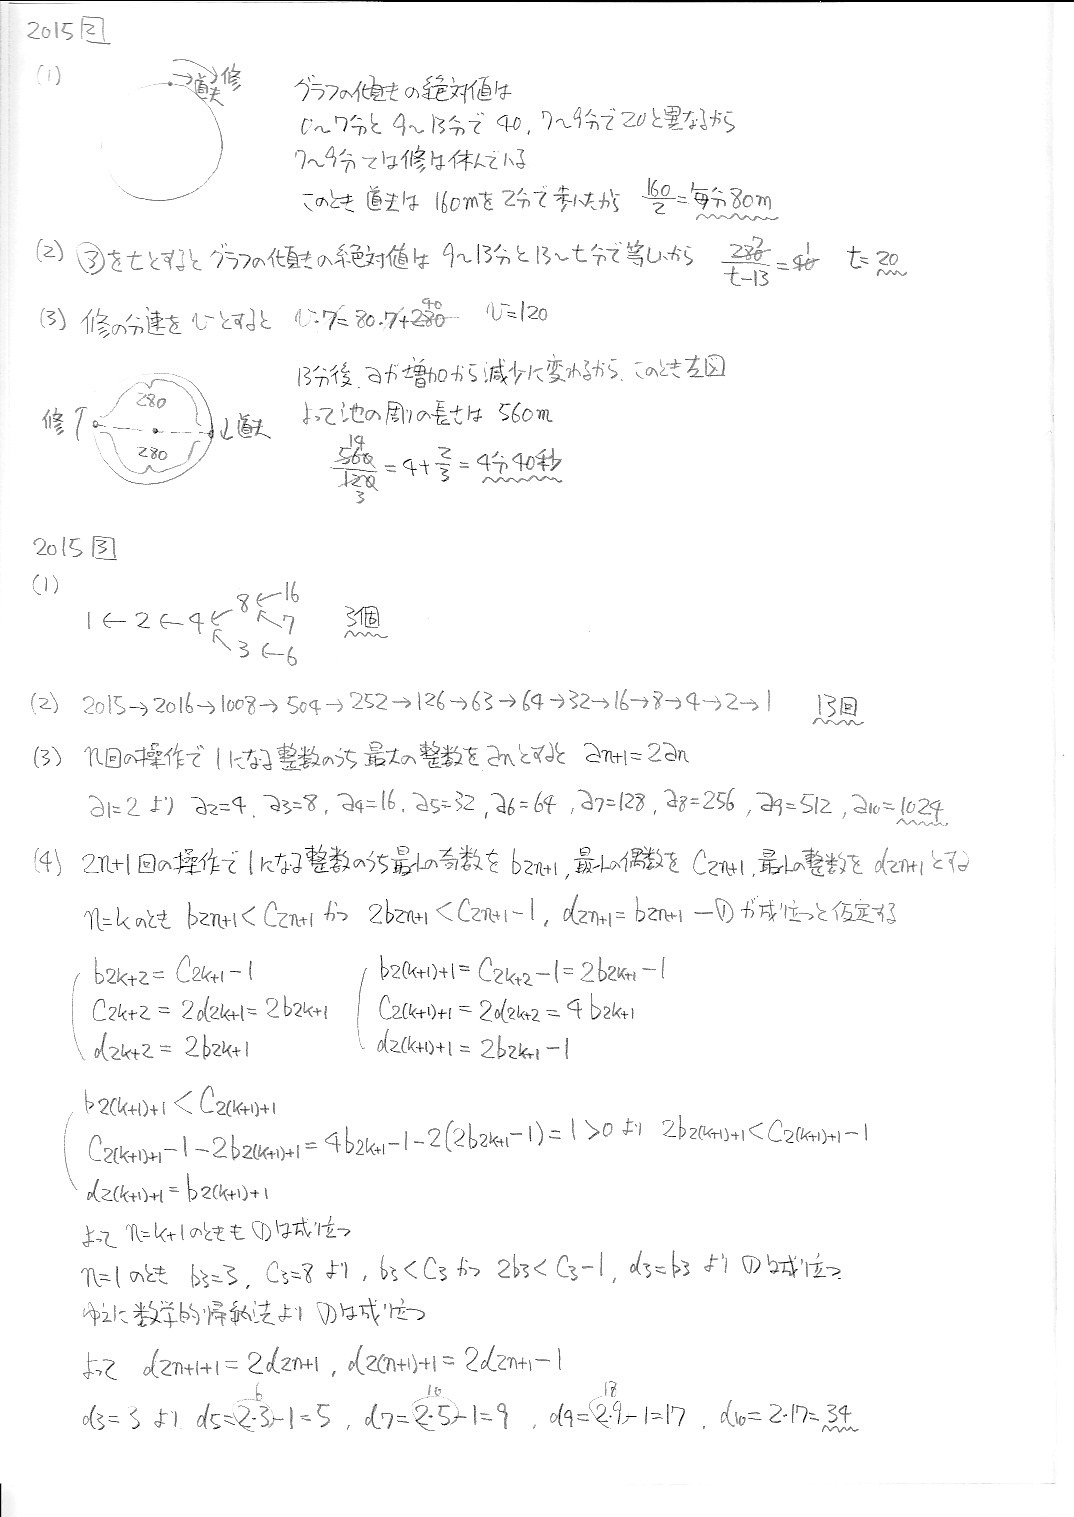 2015 2
(1)
道夫 修
グラフの傾きの絶対値は
0~7分と9~13分で40, 7~9分で20と異なるから
7~9分では修は休んでいる
このとき道夫は160mを2分で歩いたから 160/2=毎分80m
(2) ③をtとするとグラフの傾きの絶対値は9~13分と13~t分で等しいから 280/t-13=40 7 1 t=20
(3) 修の分速をvとすると v・7=80・7+280 40 v=120
13分後、aが増加から減少に変わるから、このとき左図
修↑ 280 280 ↓道夫
よって池の周りの長さは560m
560/120 14 3 =4+2/3=4分40秒
2015 3
(1)
1←2←4←8←16
←7
←3←6
3個
(2) 2015→2016→1008→504→252→126→63→64→32→16→8→4→2→1 13回
(3) n回の操作で1になる整数のうち最大の整数をanとすると an+1=2an
a1=2より a2=4, a3=8, a4=16, a5=32, a6=64, a7=128, a8=256, a9=512, a10=1024
(4) 2n+1回の操作で1になる整数のうち最小の奇数をb2n+1, 最小の偶数をC2n+1, 最小の整数をd2n+1とする
n=kのとき b2n+1<C2n+1 かつ 2b2n+1<C2n+1-1, d2n+1=b2n+1 ―①が成り立つと仮定する
b2k+2=C2k+1-1
C2k+2=2d2k+1=2b2k+1
d2k+2=2b2k+1
b2(k+1)+1=C2k+2-1=2b2k+1-1
C2(k+1)+1=2d2k+2=4b2k+1
d2(k+1)+1=2b2k+1-1
b2(k+1)+1<C2(k+1)+1
C2(k+1)+1-1-2b2(k+1)+1=4b2k+1-1-2(2b2k+1-1)=1>0より 2b2(k+1)+1<C2(k+1)+1-1
d2(k+1)+1=b2(k+1)+1
よってn=k+1のときも①は成り立つ
n=1のとき b3=3, C3=8より, b3<C3かつ 2b3<C3-1, d3=b3より①は成り立つ
ゆえに数学的帰納法より①は成り立つ
よって d2n+1+1=2d2n+1, d2(n+1)+1=2d2n+1-1
d3=3より d5=2・3-1=5, d7=2・5-1=9, d9=2・9-1=17, d10=2・17=34
6 10 18